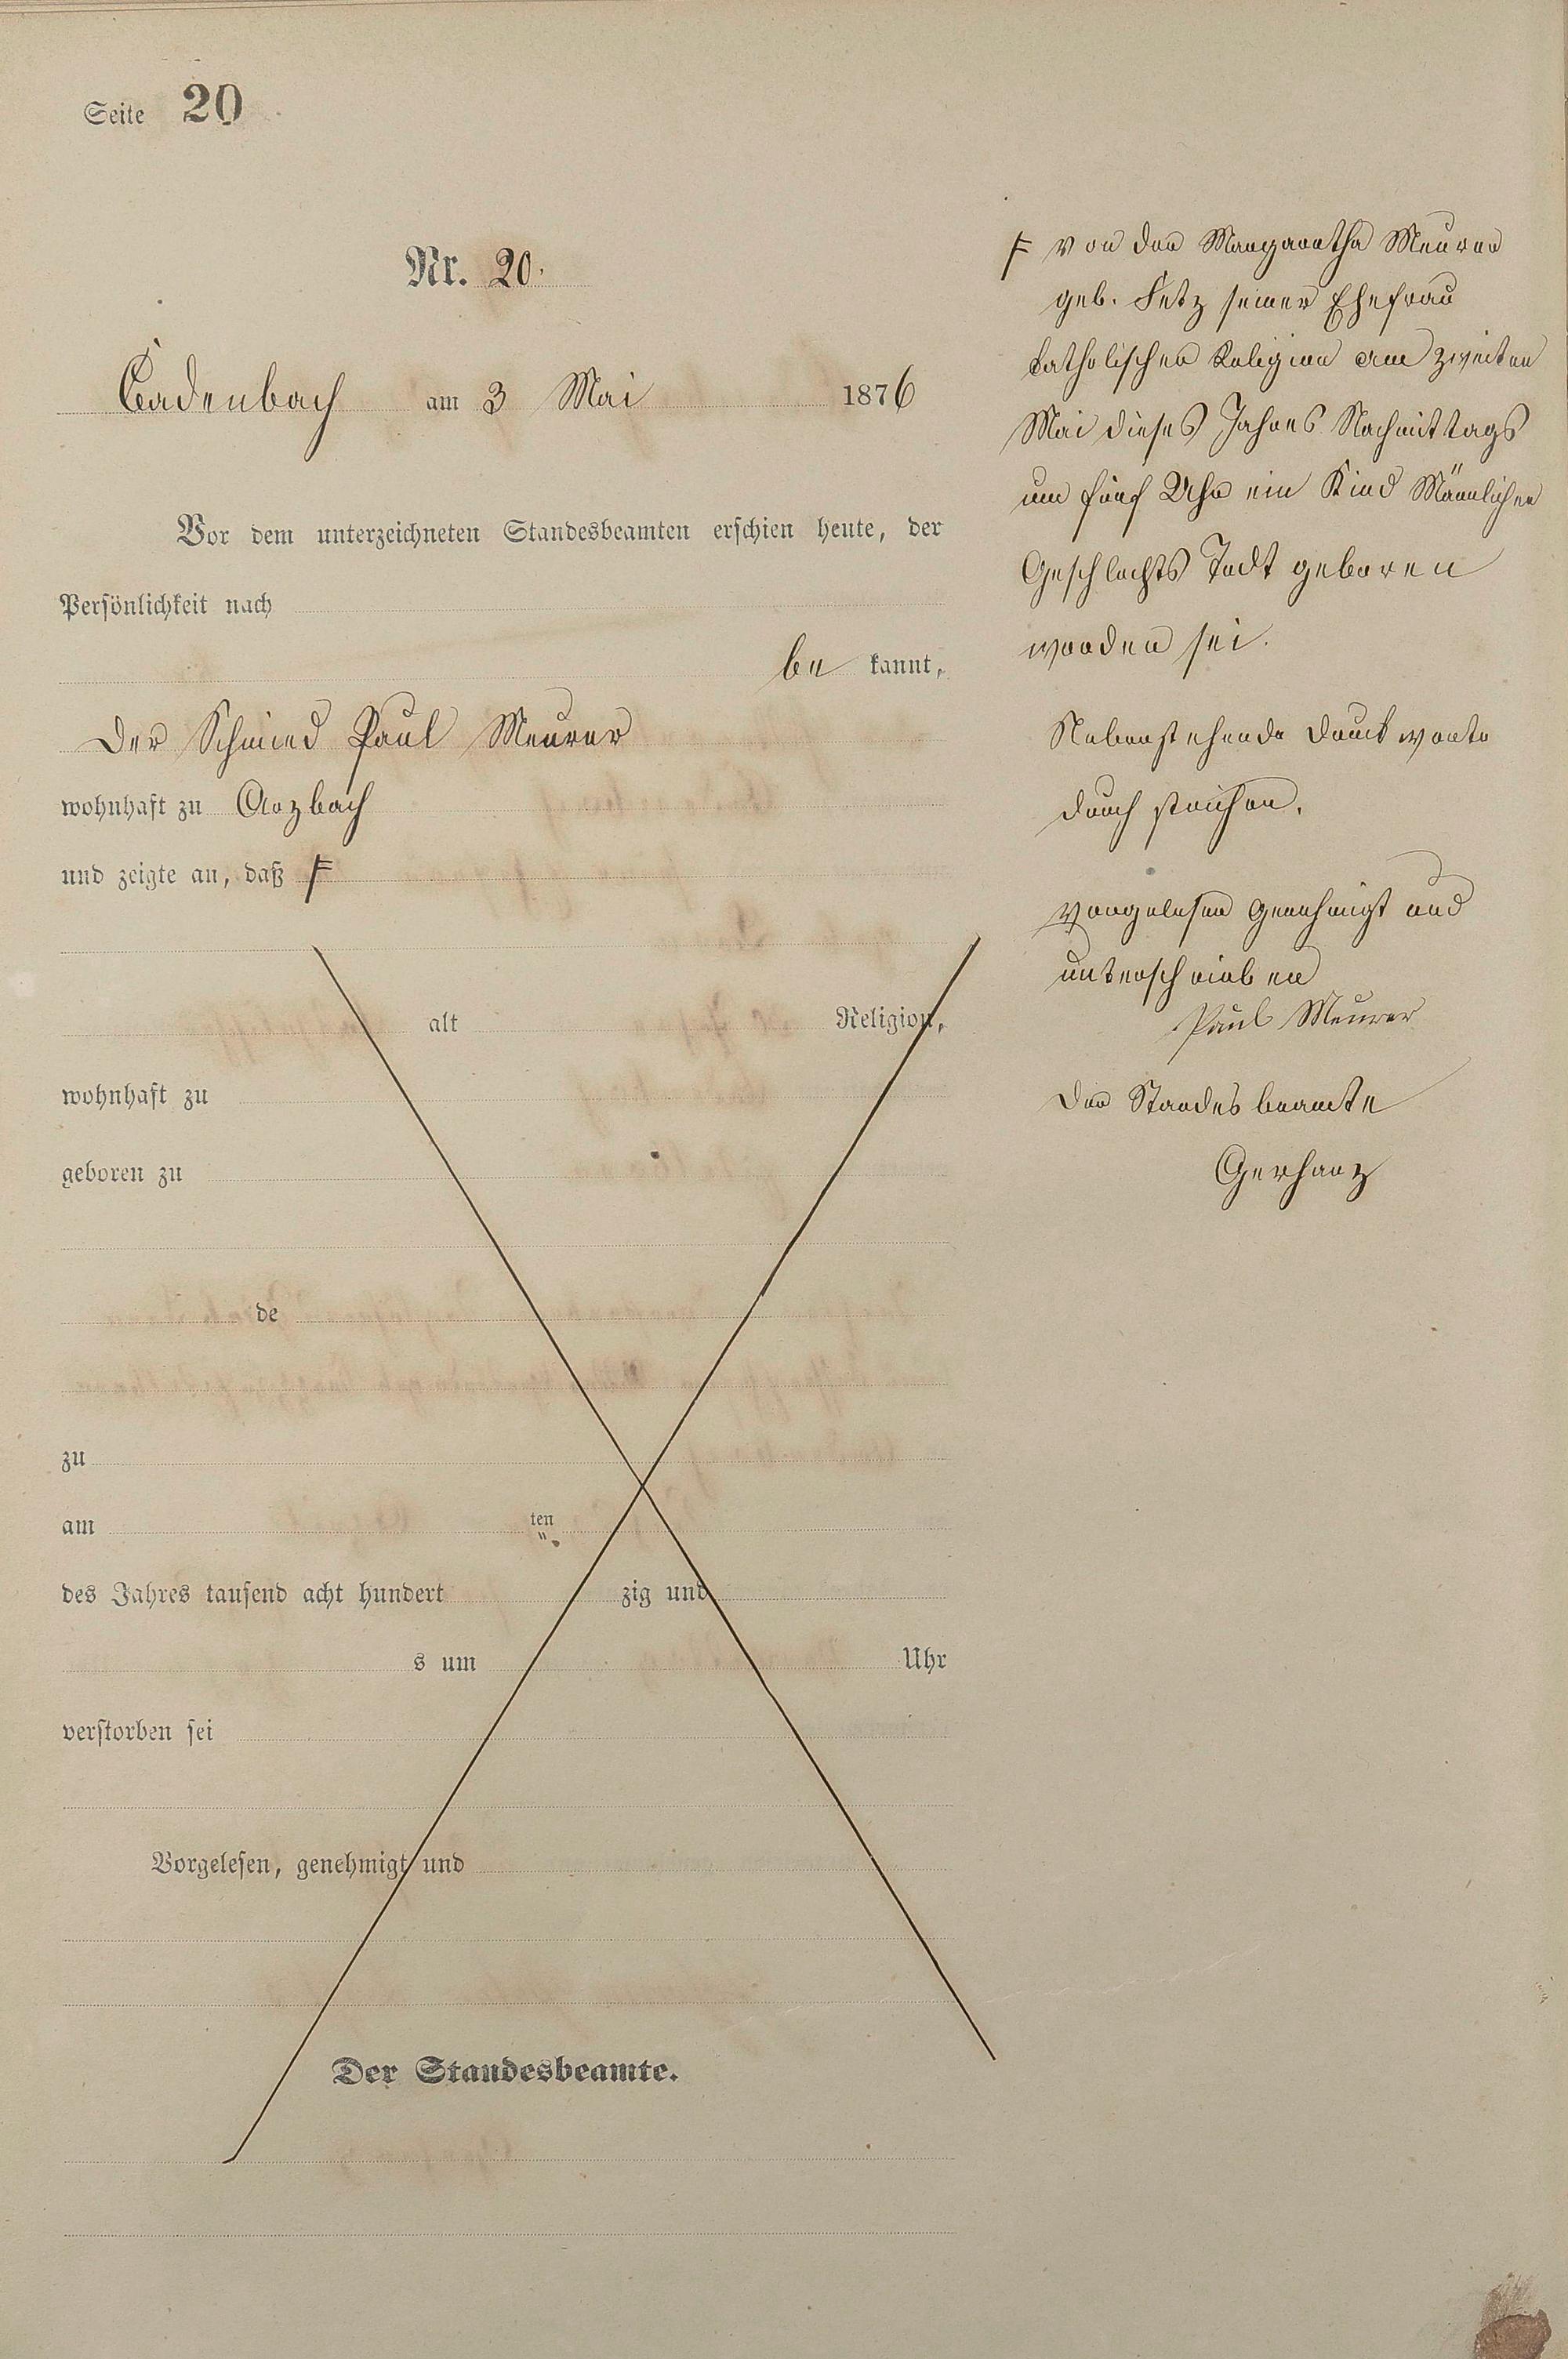 Seite 20
Nr. 20.
Cadenbach am 3 Mai 1876
Vor dem unterzeichneten Standesbeamten erschien heute, der
Persönlichkeit nach
be kannt,
Der Schmied Paul Meurer
wohnhaft zu Arzbach
und zeigte an, daß F
alt Religion,
wohnhaft zu
geboren zu
de
zu
am ten
des Jahres tausend acht hundert zig und
s um Uhr
verstorben sei
Vorgelesen, genehmigt und
Der Standesbeamte.
F von der Margaretha Meurer
geb. Fetz seiner Ehefrau
katholischer Religion am zweiten
Mai dieses Jahres Nachmittags
um fünf Uhr ein Kind Männlichen
Geschlechts Todt geboren
worden sei.
Nebenstehende Druckworte
durch strichen.
Vorgelesen genehmigt und
unterschrieben
Paul Meurer
Der Standesbeamte
Gerhanz